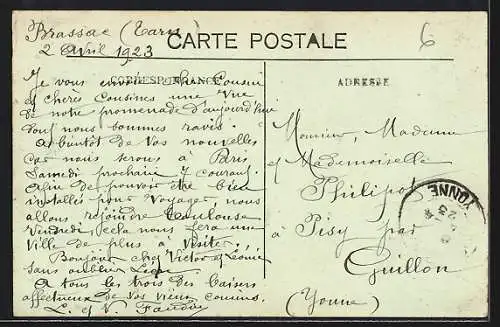 Brassac (Tarn)
2 avril 1923
CARTE POSTALE
6
CORRESPONDANCE
ADRESSE
Je vous envoie cher Cousin
et chères Cousines une vue
de notre promenade d'aujourd'hui
dont nous sommes ravis.
a bientôt de vos nouvelles
car nous serons à Paris
Samedi prochain 7 courant.
Afin de pouvoir être bien
installés pour voyager, nous
allons rejoindre Toulouse
Vendredi, cela nous fera une
Ville de plus à visiter.
Bonjour chez Victor et Léonie
sans oublier
A tous les trois des baisers
affectueux de vos vieux cousins.
L. et V.
Monsieur, Madame
et Mademoiselle
Philipot
à Pisy par
Guillon
(Yonne)
YONNE